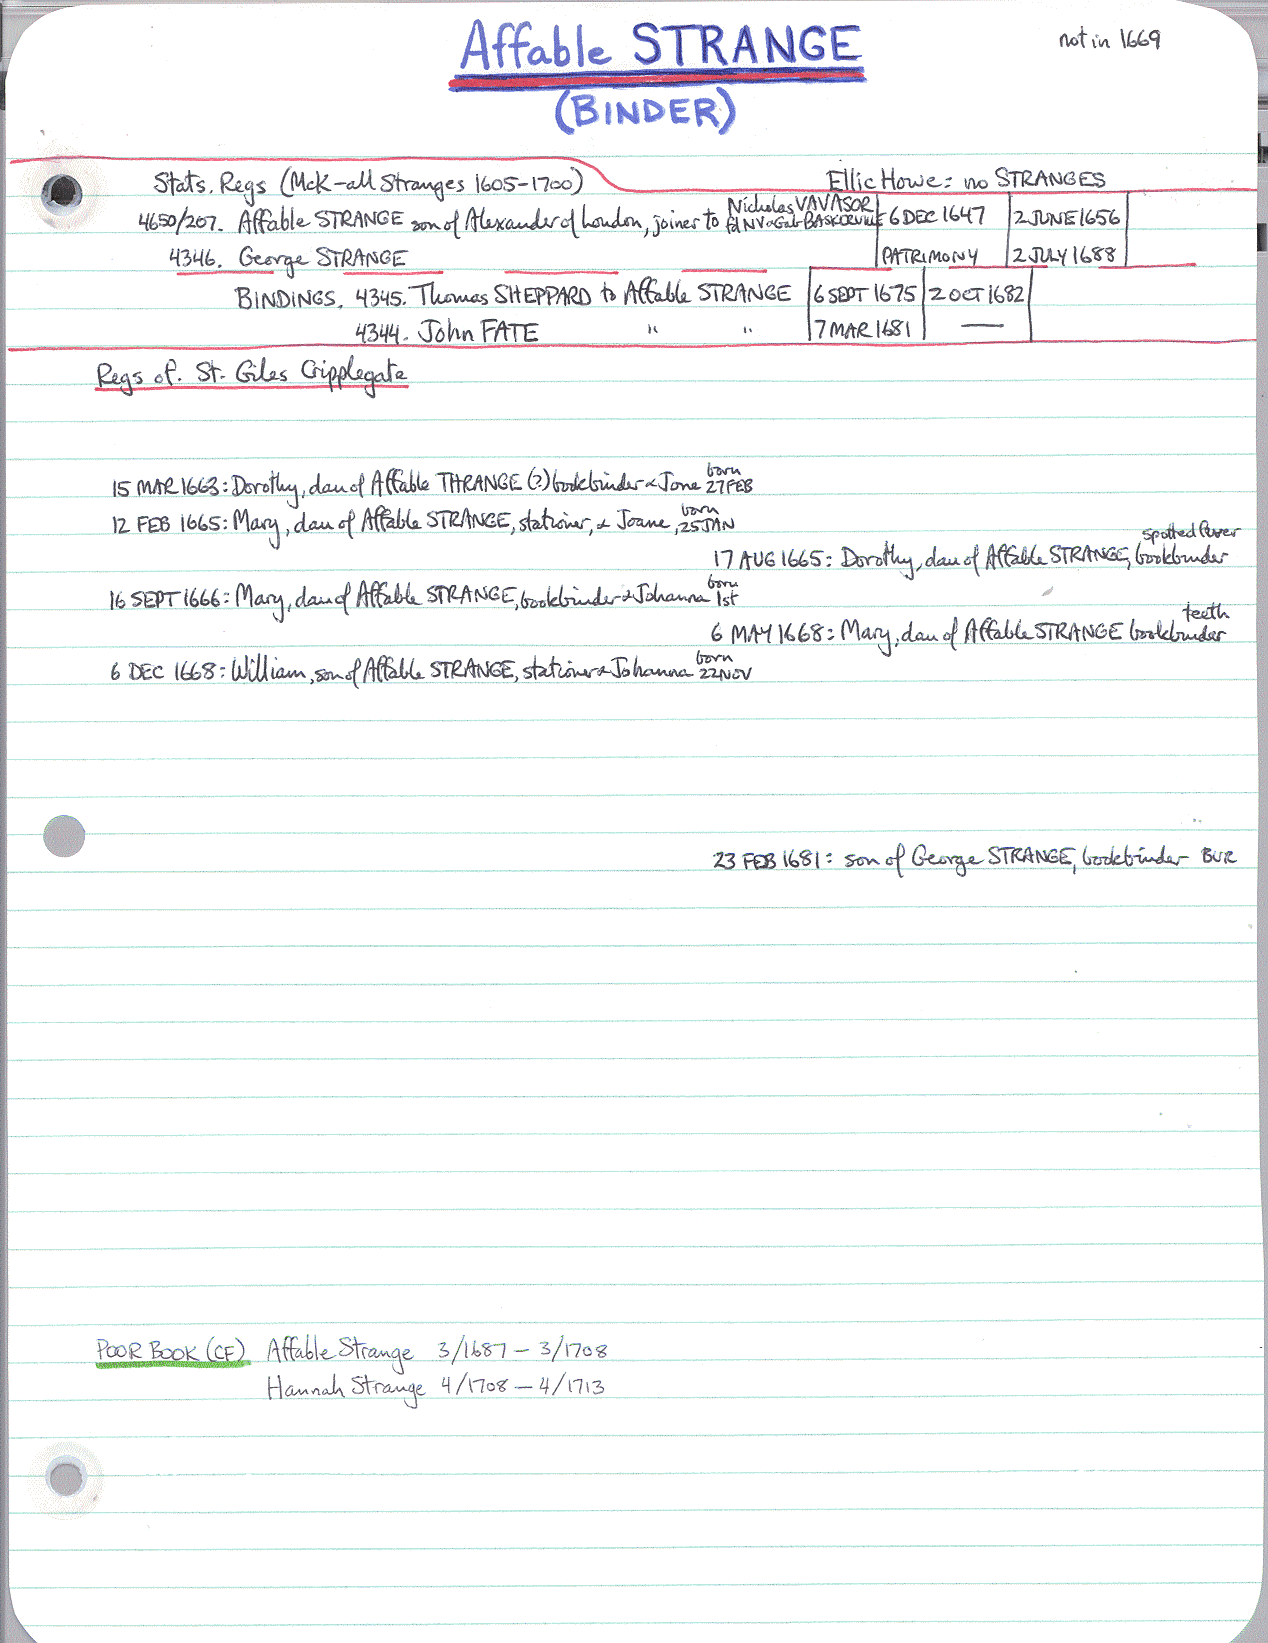 Affable STRANGE
not in 1669
(BINDER)
Stats. Regs (McK-all Stranges 1605-1700)
Ellic Howe: no STRANGES
4650/207. Affable STRANGE son of Alexander of London, joiner to Nicholas VAVASOR 6 DEC 1647 2 JUNE 1656
NV & Gab BASKERVILLE
4346. George STRANGE PATRIMONY 2 JULY 1688
BINDINGS. 4345. Thomas SHEPPARD to Affable STRANGE 6 SEPT 1675 2 OCT 1682
4344. John FATE " " 7 MAR 1681 —
Regs of. St. Giles Cripplegate
15 MAR 1663: Dorothy, dau of Affable THRANGE (?) bookbinder & Jone born 27 FEB
12 FEB 1665: Mary, dau of Affable STRANGE, stationer, & Joane, born 25 JAN
17 AUG 1665: Dorothy, dau of Affable STRANGE, bookbinder spotted fever
16 SEPT 1666: Mary, dau of Affable STRANGE, bookbinder & Johanna born 1st
6 MAY 1668: Mary, dau of Affable STRANGE bookbinder teeth
6 DEC 1668: William, son of Affable STRANGE, stationer & Johanna born 22 NOV
23 FEB 1681: son of George STRANGE, bookbinder- BUR
POOR BOOK (CF) Affable Strange 3/1687 - 3/1708
Hannah Strange 4/1708 - 4/1713